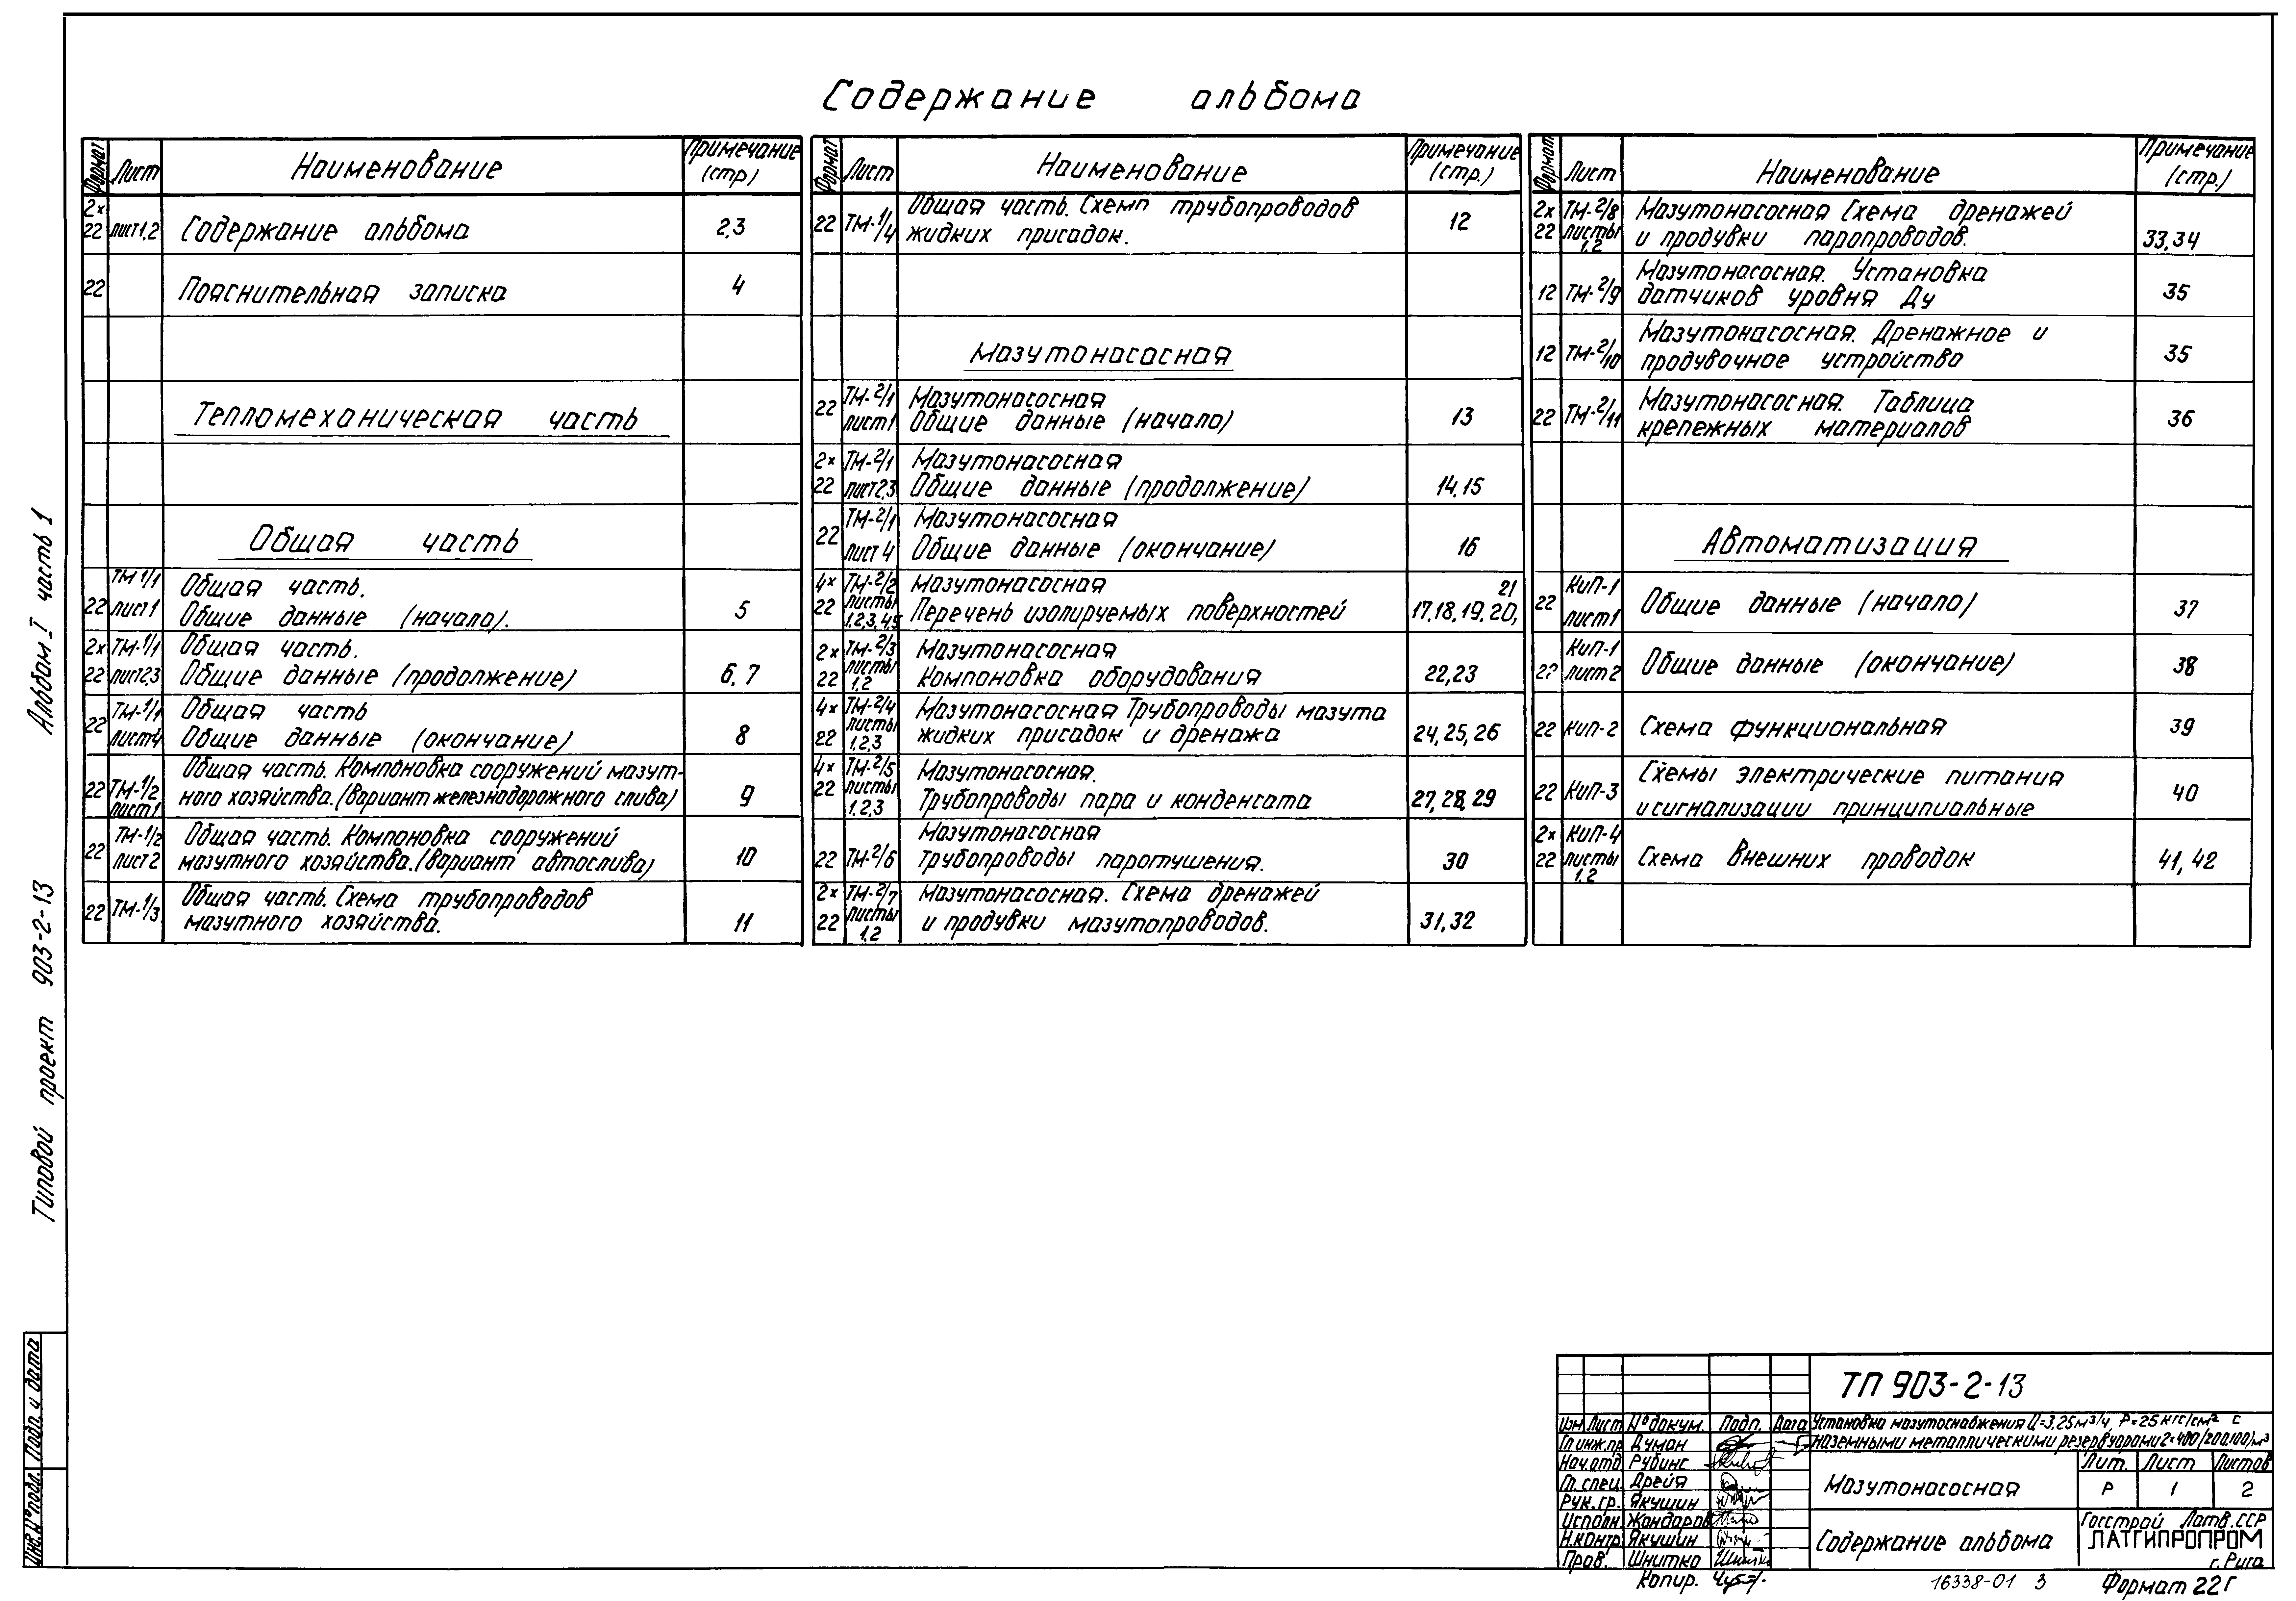 Содержание альбома
Формат Лист Наименование Примечание (стр)
2× 22 лист 1,2 Содержание альбома 2,3
22 Пояснительная записка 4
Тепломеханическая часть
Общая часть
22 ТМ 1/1 лист 1 Общая часть.
Общие данные (начало). 5
2× 22 ТМ-1/1 лист 2,3 Общая часть.
Общие данные (продолжение) 6,7
22 ТМ-1/1 лист 4 Общая часть
Общие данные (окончание) 8
22 ТМ-1/2 лист 1 Общая часть. Компоновка сооружений мазут-
ного хозяйства. (вариант железнодорожного слива) 9
22 ТМ-1/2 лист 2 Общая часть. Компоновка сооружений
мазутного хозяйства. (вариант автослива) 10
22 ТМ-1/3 Общая часть. Схема трубопроводов
мазутного хозяйства. 11
Формат Лист Наименование Примечание (стр.)
22 ТМ-1/4 Общая часть. Схема трубопроводов
жидких присадок. 12
Мазутонасосная
22 ТМ-2/1 лист 1 Мазутонасосная
Общие данные (начало) 13
2× 22 ТМ-2/1 лист 2,3 Мазутонасосная
Общие данные (продолжение) 14,15
22 ТМ-2/1 лист 4 Мазутонасосная
Общие данные (окончание) 16
4× 22 ТМ-2/2 листы 1,2,3,4,5 Мазутонасосная
Перечень изолируемых поверхностей 17,18,19,20, 21
2× 22 ТМ-2/3 листы 1,2 Мазутонасосная
Компоновка оборудования 22,23
4× 22 ТМ-2/4 листы 1,2,3 Мазутонасосная Трубопроводы мазута
жидких присадок и дренажа 24,25,26
4× 22 ТМ-2/5 листы 1,2,3 Мазутонасосная.
Трубопроводы пара и конденсата 27,28,29
22 ТМ-2/6 Мазутонасосная
Трубопроводы паротушения. 30
2× 22 ТМ-2/7 листы 1,2 Мазутонасосная. Схема дренажей
и продувки мазутопроводов. 31,32
Формат Лист Наименование Примечание (стр.)
2× 22 ТМ-2/8 листы 1,2 Мазутонасосная Схема дренажей
и продувки паропроводов. 33,34
12 ТМ-2/9 Мазутонасосная. Установка
датчиков уровня Ду 35
12 ТМ-2/10 Мазутонасосная. Дренажное и
продувочное устройство 35
22 ТМ-2/11 Мазутонасосная. Таблица
крепежных материалов 36
Автоматизация
22 КиП-1 лист 1 Общие данные (начало) 37
22 КиП-1 лист 2 Общие данные (окончание) 38
22 КиП-2 Схема функциональная 39
22 КиП-3 Схемы электрические питания
и сигнализации принципиальные 40
2× 22 КиП-4 листы 1,2 Схема внешних проводок 41,42
Альбом I часть 1
Типовой проект 903-2-13
Подп. и дата
Инв.№подл.
ТП 903-2-13
Изм Лист №докум. Подп. Дата
Гл инж.пр Думан
Нач.отд Рубинс
Гл. спец. Дрейя
Рук. гр. Якушин
Исполн. Жандаров
Н.контр Якушин
Пров. Шнитко
Установка мазутоснабжения Q=3,25м³/ч, Р=25кгс/см² с
наземными металлическими резервуарами 2×400/200,100/м³
Мазутонасосная
Лит. Лист Листов
Р 1 2
Содержание альбома
Госстрой Латв.ССР
ЛАТГИПРОПРОМ
г. Рига
Копир.
16338-01 3
Формат 22Г